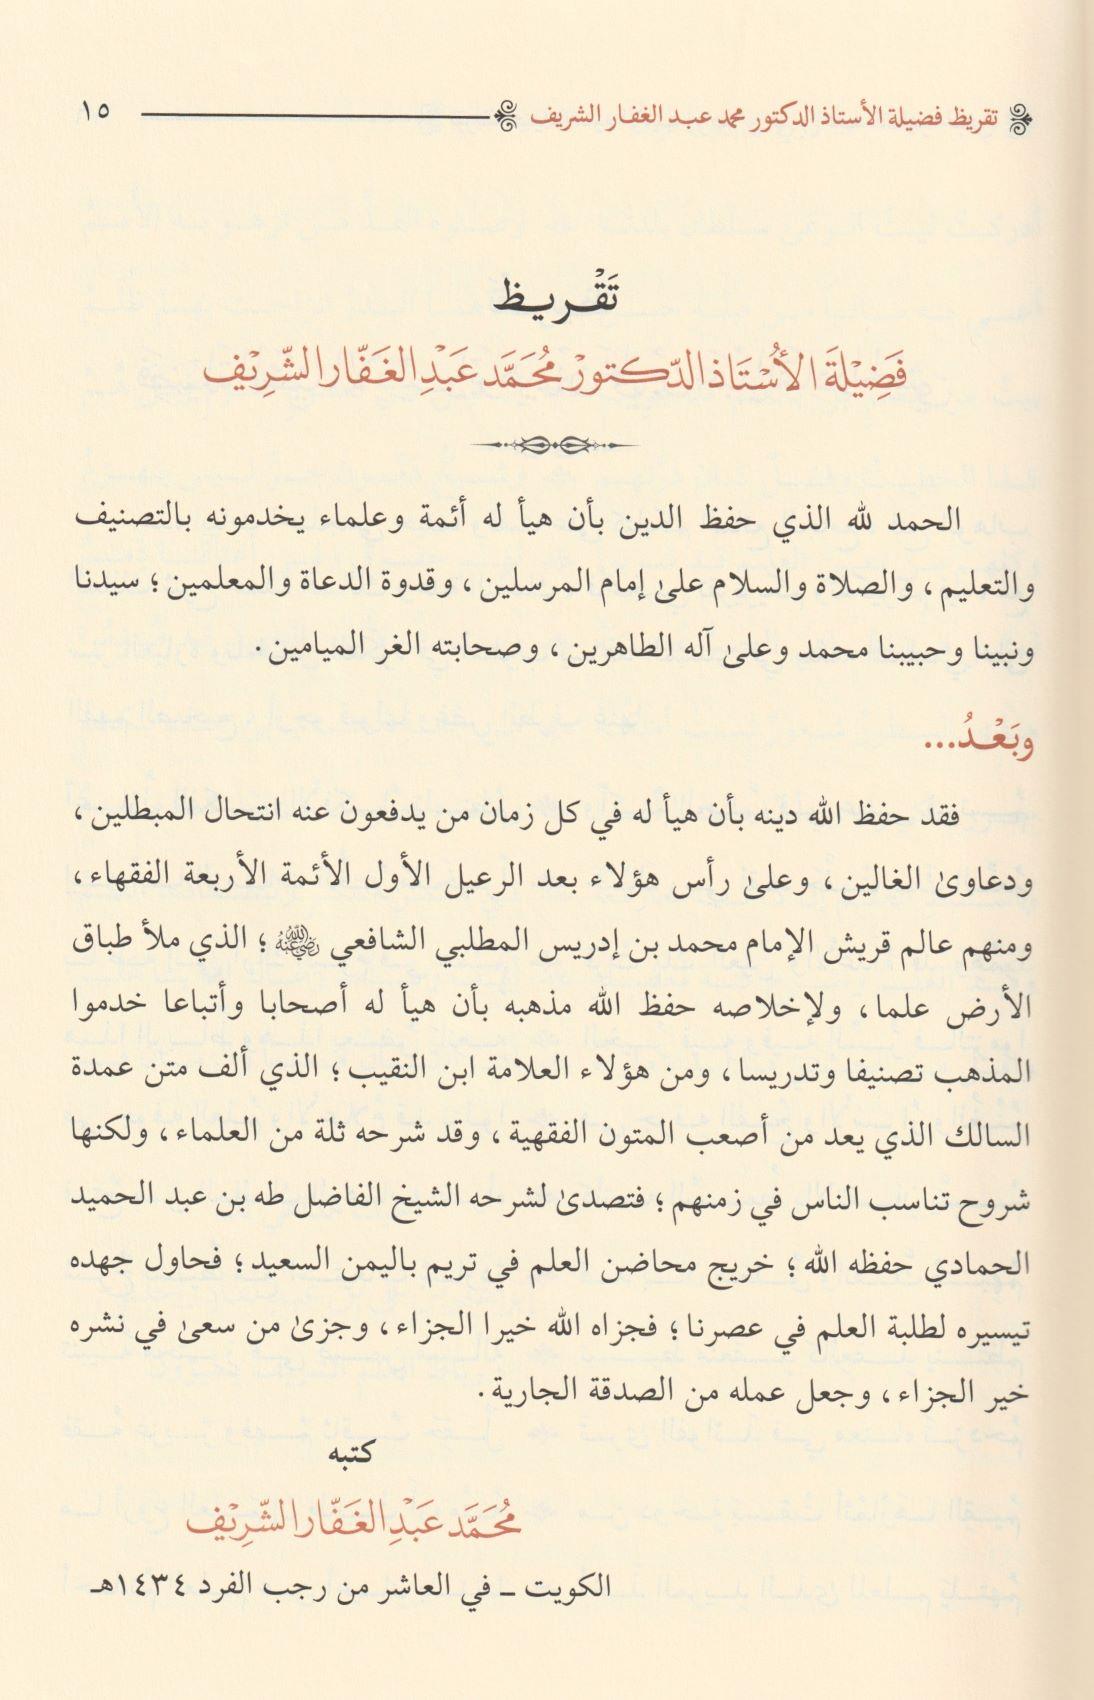 تقريظ فضيلة الأستاذ الدكتور محمد عبد الغفار الشريف ١٥
تَقْريظ
فَضِيْلَةَ الأُسْتَاذ الدّكتورْ مُحَمَّد عَبْدِ الغَفّار الشّرِيْف
الحمد لله الذي حفظ الدين بأن هيأ له أئمة وعلماء يخدمونه بالتصنيف
والتعليم، والصلاة والسلام علىٰ إمام المرسلين، وقدوة الدعاة والمعلمين؛ سيدنا
ونبينا وحبيبنا محمد وعلىٰ آله الطاهرين، وصحابته الغر الميامين.
وبَعْدُ...
فقد حفظ الله دينه بأن هيأ له في كل زمان من يدفعون عنه انتحال المبطلين،
ودعاوىٰ الغالين، وعلىٰ رأس هؤلاء بعد الرعيل الأول الأئمة الأربعة الفقهاء،
ومنهم عالم قريش الإمام محمد بن إدريس المطلبي الشافعي رضي الله عنه؛ الذي ملأ طباق
الأرض علما، ولإخلاصه حفظ الله مذهبه بأن هيأ له أصحابا وأتباعا خدموا
المذهب تصنيفا وتدريسا، ومن هؤلاء العلامة ابن النقيب؛ الذي ألف متن عمدة
السالك الذي يعد من أصعب المتون الفقهية، وقد شرحه ثلة من العلماء، ولكنها
شروح تناسب الناس في زمنهم؛ فتصدىٰ لشرحه الشيخ الفاضل طه بن عبد الحميد
الحمادي حفظه الله؛ خريج محاضن العلم في تريم باليمن السعيد؛ فحاول جهده
تيسيره لطلبة العلم في عصرنا؛ فجزاه الله خيرا الجزاء، وجزىٰ من سعىٰ في نشره
خير الجزاء، وجعل عمله من الصدقة الجارية.
كتبه
مُحَمَّد عَبْدِ الغَفّار الشّرِيْف
الكويت ـ في العاشر من رجب الفرد ١٤٣٤هـ